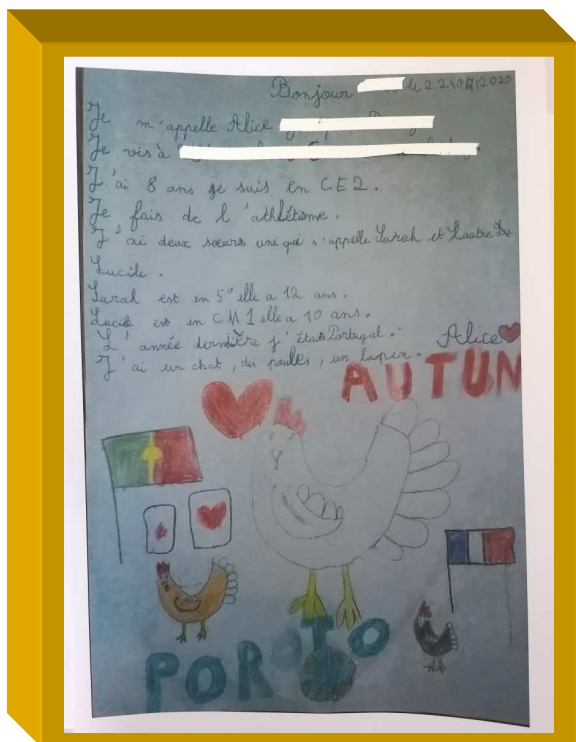 Bonjour le 22/04/2020
Je m'appelle Alice
Je vis à
J'ai 8 ans je suis en CE2.
Je fais de l'athlétisme.
J'ai deux sœurs une qui s'appelle Sarah et l'autre
Lucile.
Sarah est en 5° elle a 12 ans.
Lucile est en CM1 elle a 10 ans.
L'année dernière j'étais Portugal.
J'ai un chat, des poules, un lapin.
Alice
AUTUN
PORTO